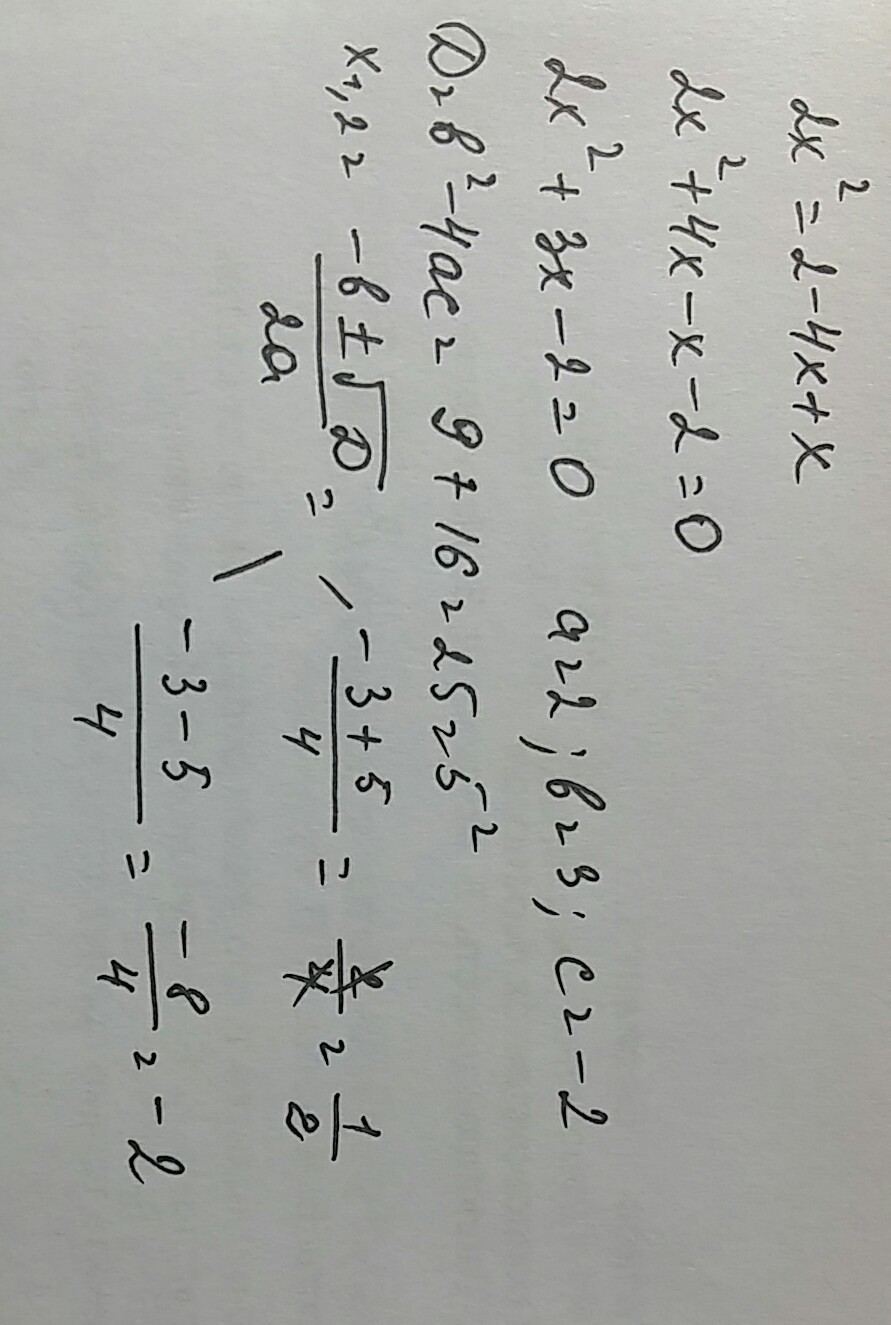 2x² = 2 - 4x + x
2x² + 4x - x - 2 = 0
2x² + 3x - 2 = 0 a = 2; b = 3; c = -2
D = b² - 4ac = 9 + 16 = 25 = 5²
x₁,₂ = (-b ± √D)/2a =
(-3 + 5)/4 = 2/4 = 1/2
(-3 - 5)/4 = -8/4 = -2